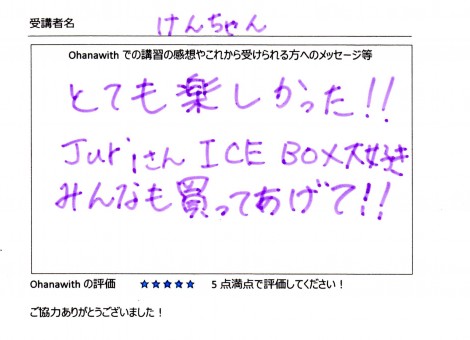 受講者名 けんちゃん
Ohanawith での講習の感想やこれから受けられる方へのメッセージ等
とても楽しかった!!
Juriさん ICE BOX大好き
みんなも買ってあげて!!
Ohanawith の評価 ★★★★★ 5 点満点で評価してください！
ご協力ありがとうございました！